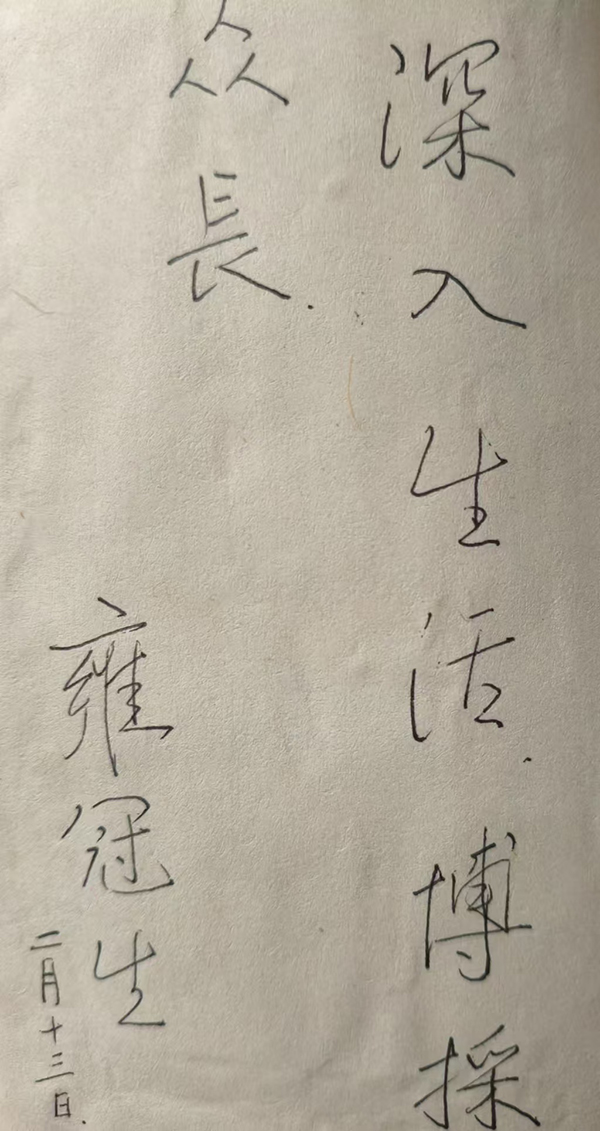 深入生活.博採
众長.
雍冠生
二月十三日.